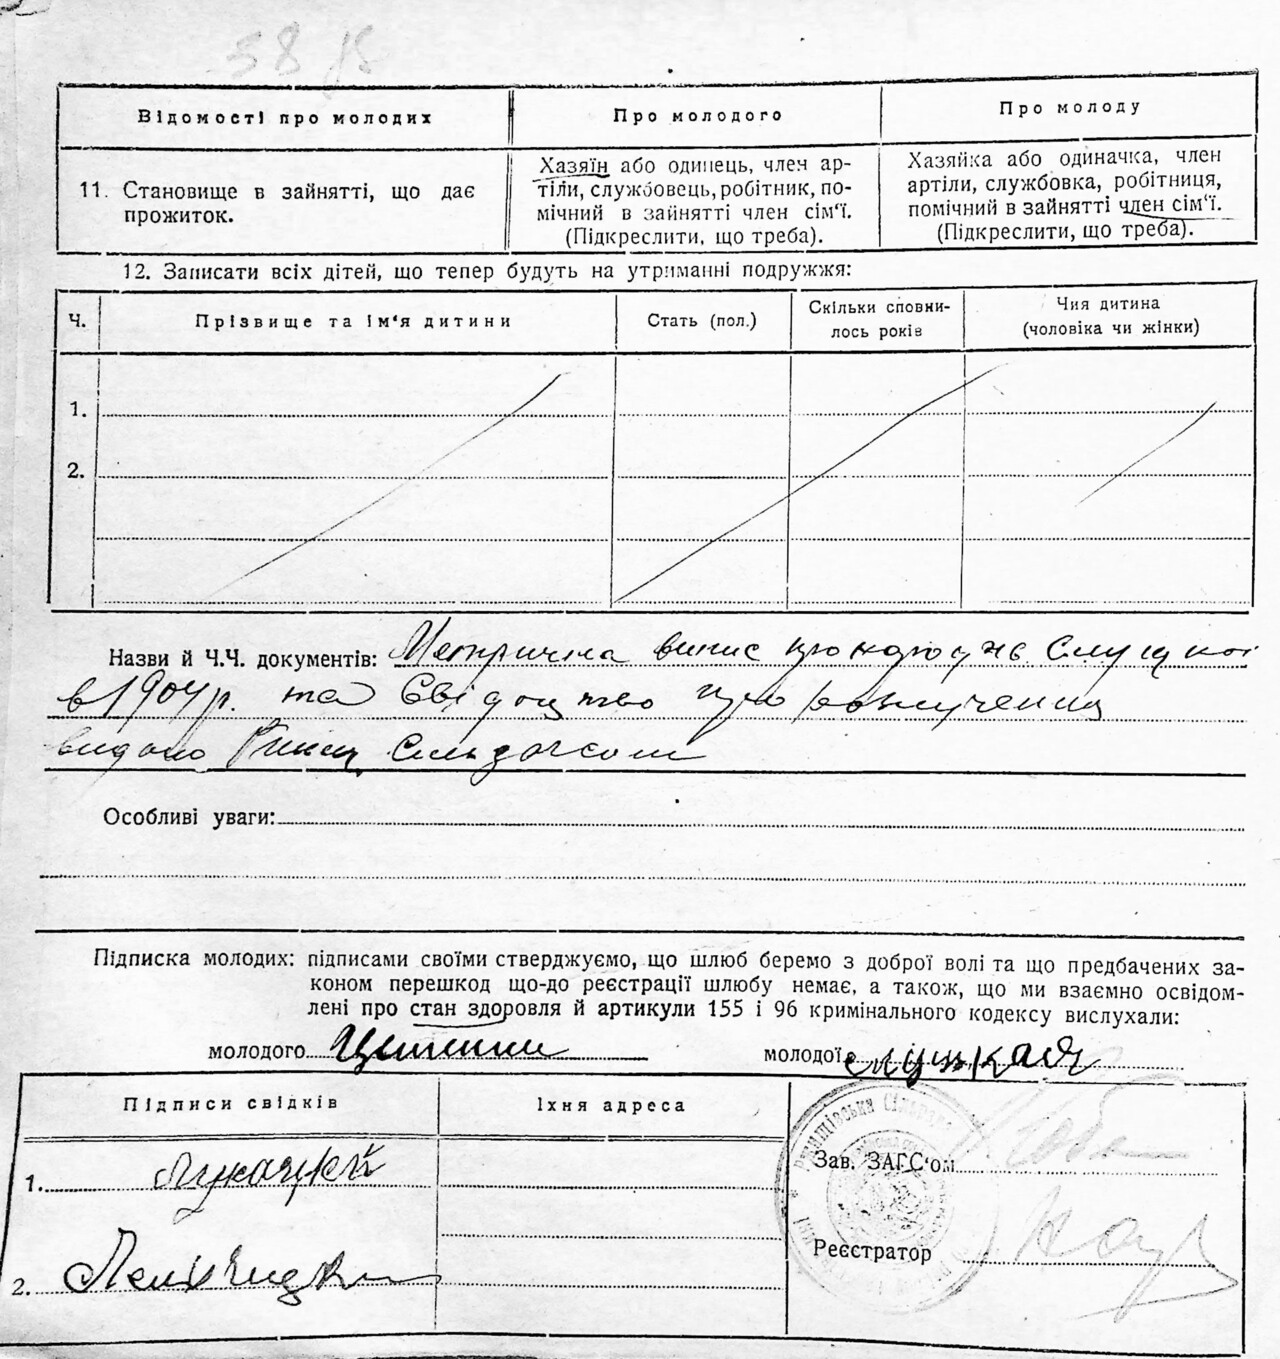 58
Відомості про молодих
Про молодого
Про молоду
11. Становище в зайнятті, що дає
прожиток.
Хазяїн або одинець, член ар-
тіли, службовець, робітник, по-
мічний в зайнятті член сім'ї.
(Підкреслити, що треба).
Хазяйка або одиначка, член
артіли, службовка, робітниця,
помічний в зайнятті член сім'ї.
(Підкреслити, що треба).
12. Записати всіх дітей, що тепер будуть на утриманні подружжя:
Ч.
Прізвище та ім'я дитини
Стать (пол.)
Скільки сповни-
лось років
Чия дитина
(чоловіка чи жінки)
1.
2.
Назви й Ч.Ч. документів: Метрична випис про народж. Слуцкої
в 1904 р. та Свідоцтво про розлучення
видано Сильрадою
Особливі уваги:
Підписка молодих: підписами своїми стверджуємо, що шлюб беремо з доброї волі та що предбачених за-
коном перешкод що-до реєстрації шлюбу немає, а також, що ми взаємно освідом-
лені про стан здоровля й артикули 155 і 96 кримінального кодексу вислухали:
молодого
молодої Слуцкая
Підписи свідків
Їхня адреса
1.
2.
Зав. ЗАГС'ом
Реєстратор